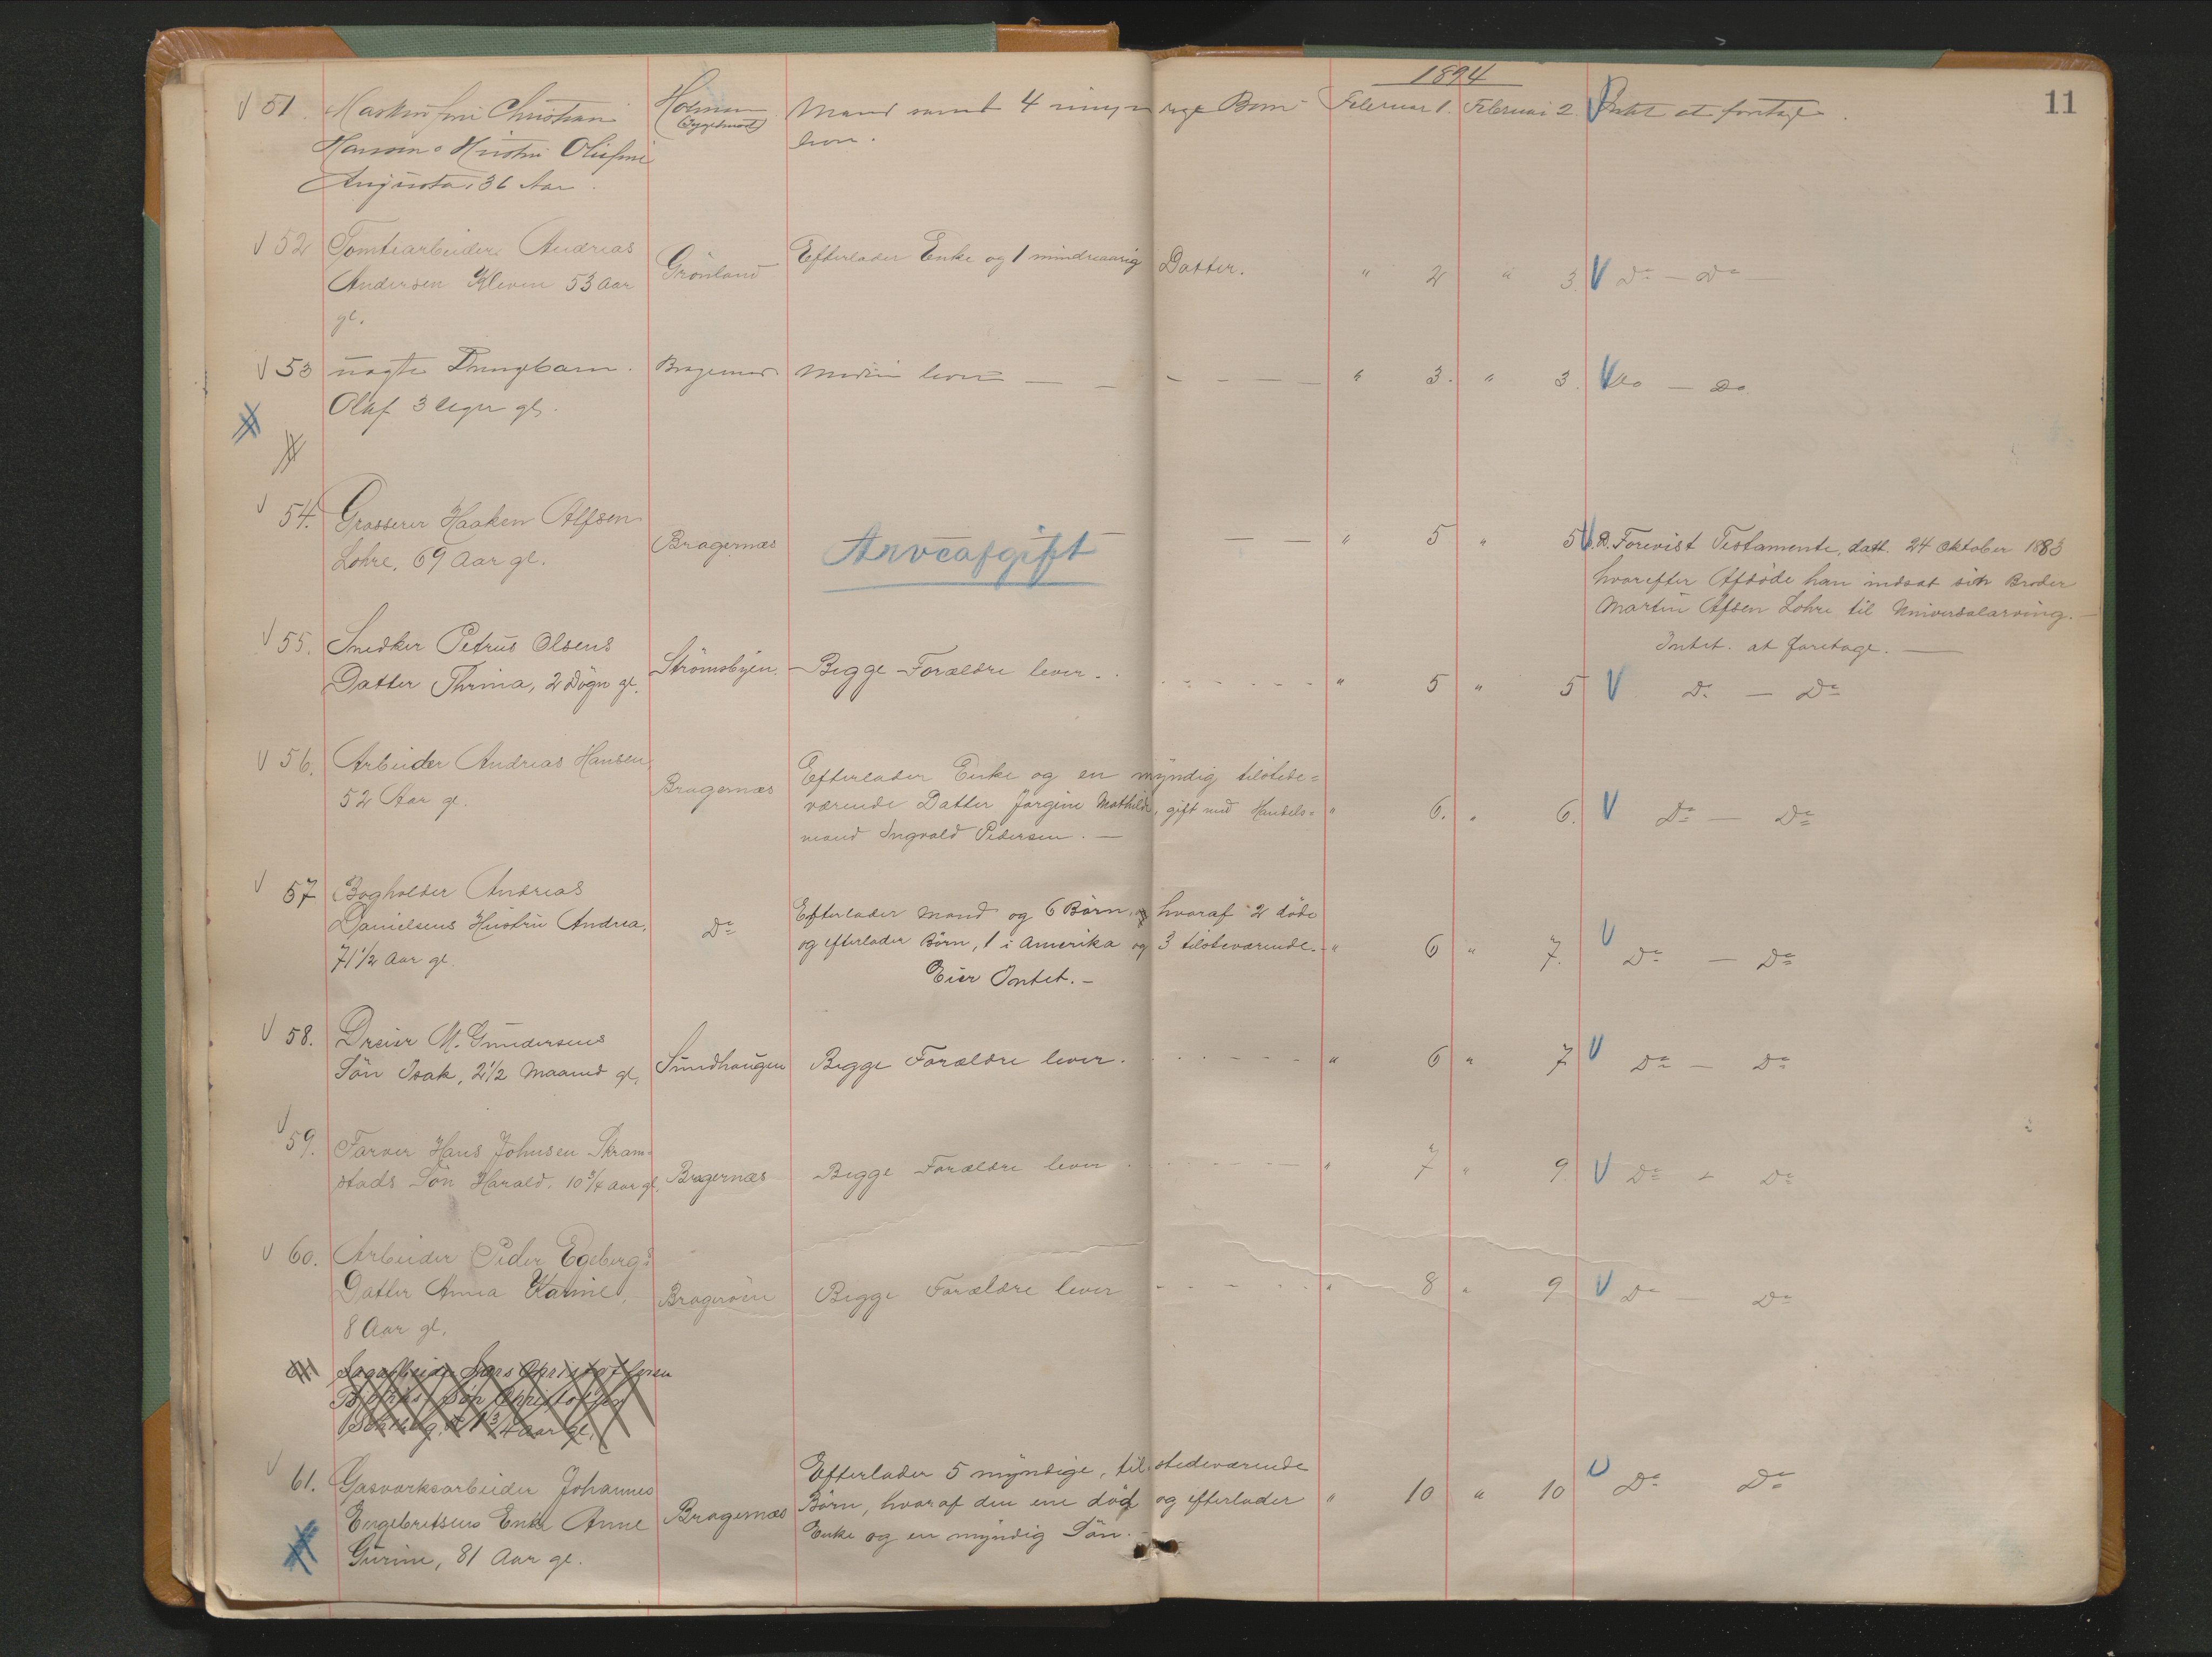 1894
11
51 Christian Holmen Mand samt 4 Børn Februar 1. Februar 2. Intet at foretage.
Hansens Hustru Olufine lever.
Augusta, 36 Aar.
52 Tomtearbeider Andreas Grönland Efterlader Enke og 1 mindreaarig Datter. " 2 " 3. Do — Do —
Andersen Kleven 53 Aar
gl.
53 uægte Drengebarn. Bragernæs lever — — — — — " 3. " 3. Do — Do
Olaf 3 Uger gl.
54. Grosserer Haaken Alfsen Bragernæs Arveafgift — — " 5 " 5 Forevist Testamente, datt. 24 Oktober 1883
Lohre, 69 Aar gl. hvorefter Afdöde har indsat sin Broder
Martin Alfsen Lohre til Universalarving. —
Intet at foretage. —
55. Snedker Petrus Olsens Strömsbyen. Begge Forældre lever. " 5 " 5 Do — Do
Datter Thrina, 2 Dögn gl.
56. Arbeider Andreas Hansen, Bragernæs Efterlader Enke og en myndig tilstede=
52 Aar gl. værende Datter Jørgine Mathilde, gift med Handels= " 6. " 6. Do — Do
mand Ingvald Pedersen. —
57 Bogholder Andreas
Danielsens Hustru Andrea, Do Efterlader Mand og 6 Börn, hvoraf 2 döde
71½ Aar gl. og efterlader Börn, 1 i Amerika og 3 tilsteværende. — " 6 " 7. Do — Do
Eier Intet. —
58. Dreier M. Gundersens
Sön Isak, 2½ Maaned gl. Sundhaugen Begge Forældre lever. " 6 " 7 Do — Do
59. Farver Hans Johnsen Skram-
stads Sön Harald, 10¾ Aar gl. Bragernæs Begge Forældre lever " 7 " 9 Do — Do
60. Arbeider Peder Egebergs
Datter Anna Karine, Bragerøen Begge Forældre lever " 8 " 9 Do — Do
8 Aar gl.
Lars Christoffersen
Sön Christoffer
1¾ Aar gl.
61. Gasværksarbeider Johannes Efterlader 5 myndige, tilstedeværende
Engebretsens Enke Anne Bragernæs Börn, hvoraf den ene död og efterlader " 10 " 10 Do Do
Gurine, 81 Aar gl. Enke og en myndig Sön. —